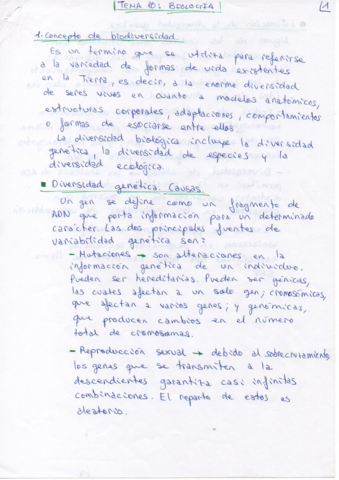 TEMA 10: BIOLOGÍA
1
1. Concepto de biodiversidad.
Es un término que se utiliza para referirse
a la variedad de formas de vida existentes
en la Tierra, es decir, a la enorme diversidad
de seres vivos en cuanto a modelos anatómicos,
estructuras corporales, adaptaciones, comportamientos
o formas de asociarse entre ellos.
La diversidad biológica incluye la diversidad
genética, la diversidad de especies y la
diversidad ecológica.
Diversidad genética. Causas.
Un gen se define como un fragmento de
ADN que porta información para un determinado
carácter. Las dos principales fuentes de
variabilidad genética son:
- Mutaciones → son alteraciones en la
información genética de un individuo.
Pueden ser hereditarias. Pueden ser génicas,
las cuales afectan a un solo gen; cromosómicas,
que afectan a varios genes; y genómicas,
que producen cambios en el número
total de cromosomas.
- Reproducción sexual → debido al sobrecruzamiento
los genes que se transmiten a la
descendientes garantiza casi infinitas
combinaciones. El reparto de estos es
aleatorio.